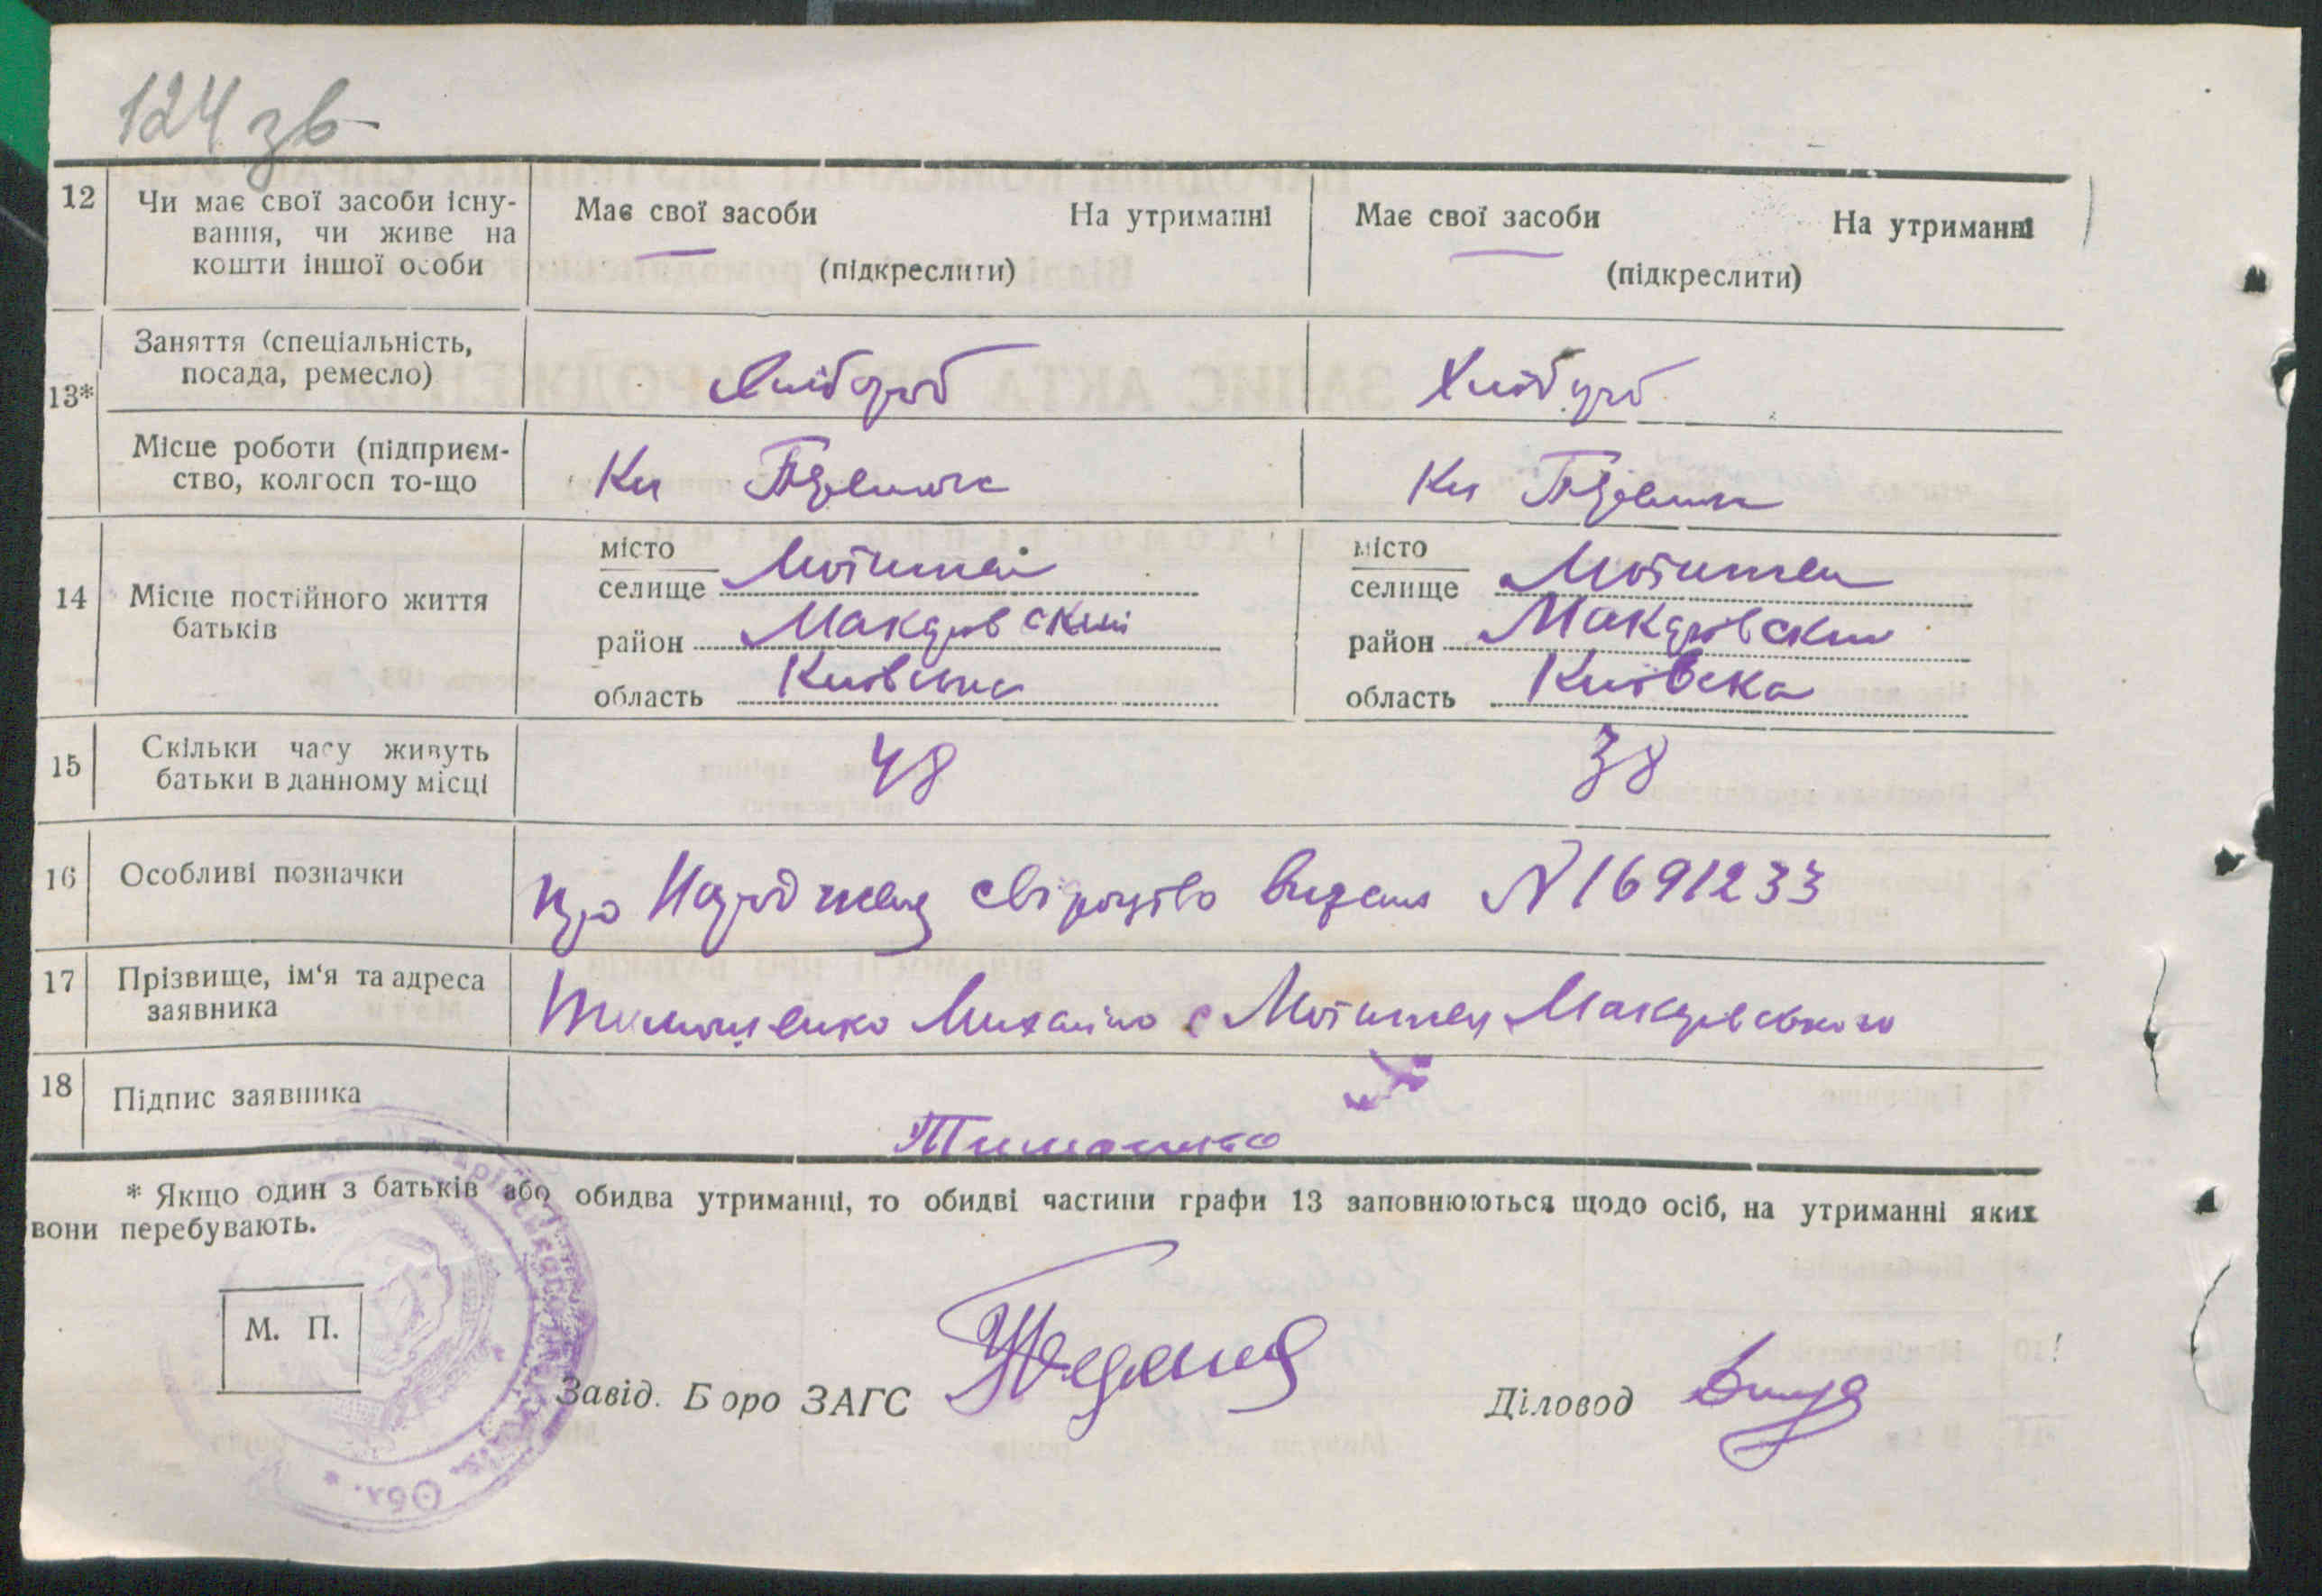 124 зв
12 Чи має свої засоби існу-
вання, чи живе на
кошти іншої особи
Має свої засоби На утриманні
(підкреслити)
Має свої засоби На утриманні
(підкреслити)
13*
Заняття (спеціальність,
посада, ремесло)
Хлібороб
Хлібороб
Місце роботи (підприєм-
ство, колгосп то-що
14 Місце постійного життя
батьків
місто
селище Мотижен
район Макарівський
область Київська
місто
селище Мотижен
район Макарівский
область Київска
15 Скільки часу живуть
батьки в данному місці
48
38
16 Особливі позначки
про Народженя свідоцтво видано N 1691233
17 Прізвище, ім‘я та адреса
заявника
Тимошенко Михайло с Мотижен Макарівського
18 Підпис заявника
Тимошенко
* Якщо один з батьків або обидва утриманці, то обидві частини графи 13 заповнюються щодо осіб, на утриманні яких
вони перебувають.
М. П.
Завід. Б оро ЗАГС
Діловод
Обл.